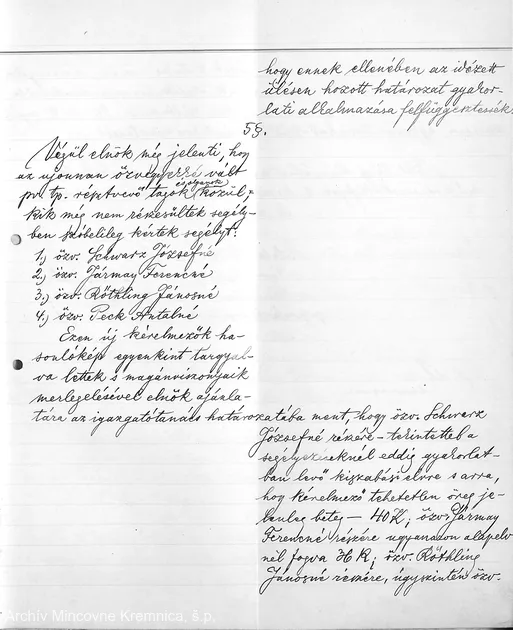 hogy ennek ellenében az idézett
ülésen hozott határozat gyakor-
lati alkalmazása felfüggesztessék.
5§.
Végül elnök még jelenti, hogy
az ujonnan özvegyekké vált
pv. tp. résztvevő tagok közül,
kik még nem részesültek segély-
ben szóbelileg kértek segélyt:
1.) özv. Schwarz Józsefné
2.) özv. Jármay Ferencné
3.) özv. Röthling Jánosné
4.) özv. Peck Antalné
Ezen új kérelmezők ha-
sonlókép egyenkint tárgyal-
va lettek s magánviszonyaik
merlegelésével elnök ajánla-
tára az igazgatótanács határozatába ment, hogy özv. Schwarz
Józsefné részére - tekintettel a
segélyezéseknél eddig gyakorlat-
ban levő kiszabási elvre s arra,
hogy kérelmező tehetetlen öreg je-
lenleg beteg - 40 K, özv. Jármay
Ferencné részére ugyanazon alapelv
nél fogva 36 K, özv. Röthling
Jánosné részére, úgyszintén özv.
Archív Mincovne Kremnica, š.p.